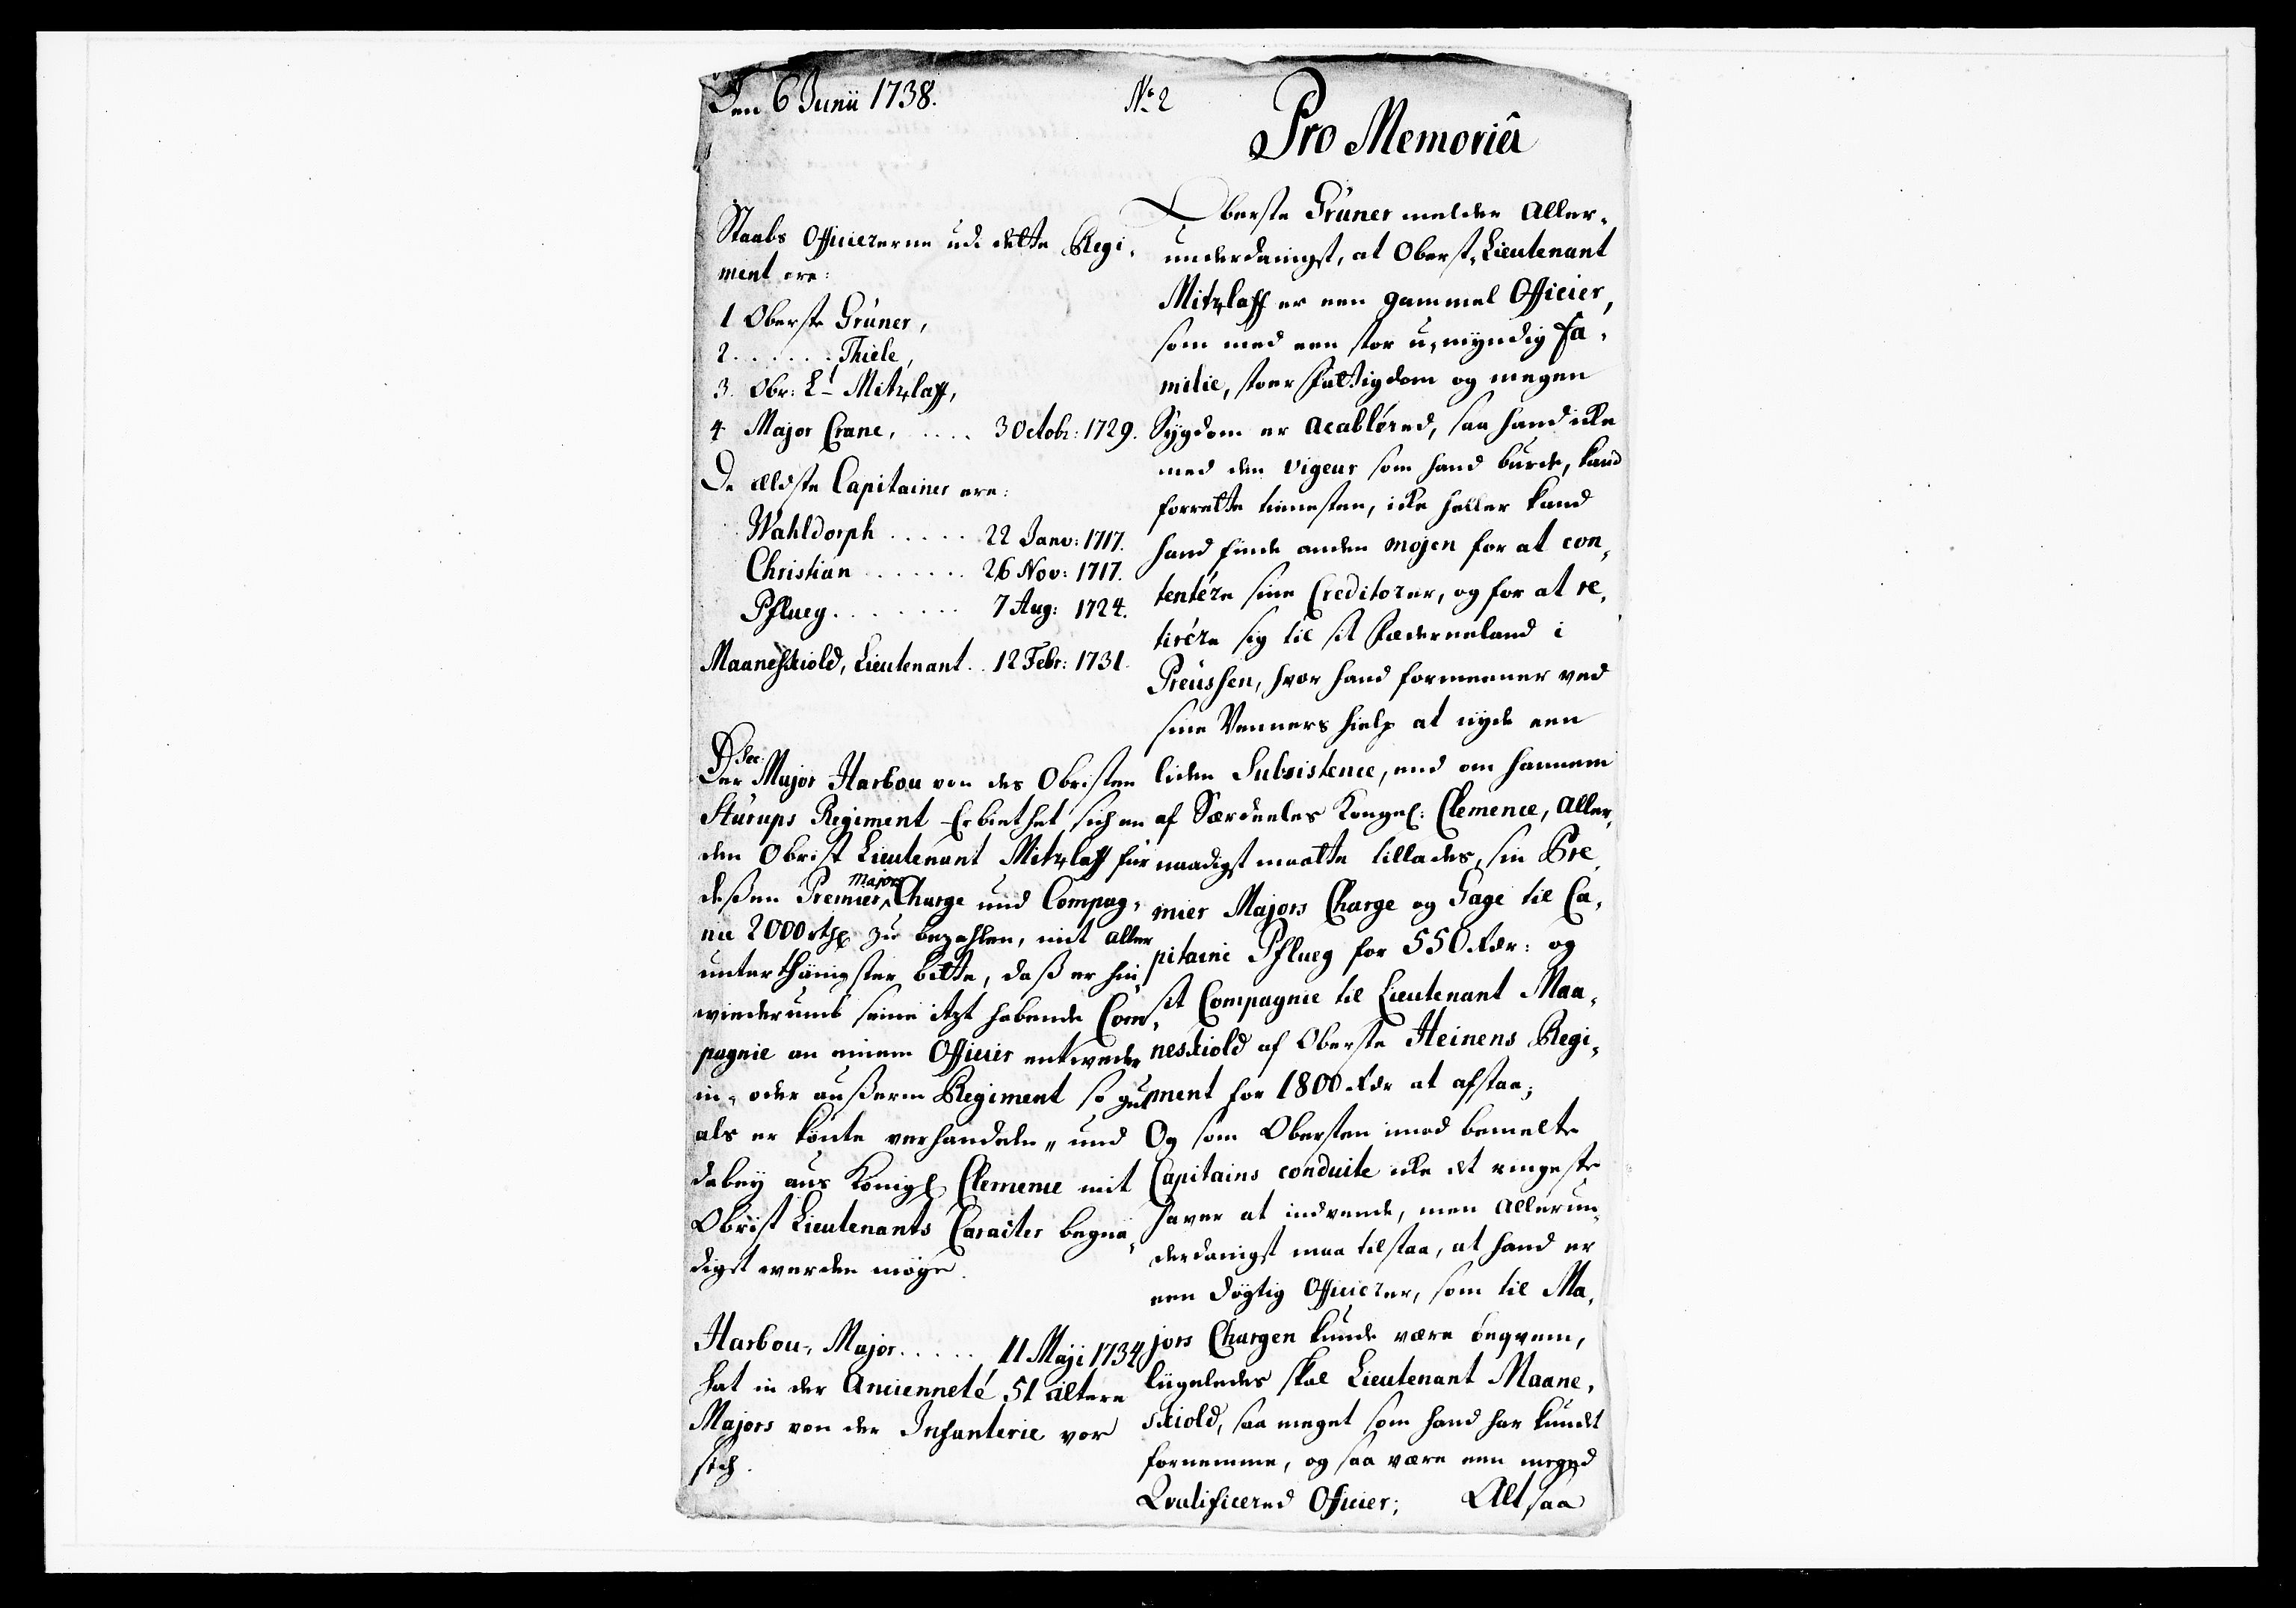 Den 6 Junii 1738.
No 2
Pro Memoriâ
Staabs Officiererne udi dette Regi-
ment ere:
1 Oberste Grüner,
2. . . . . . Thiele,
3. Obr: Lt Mitzlaff,
4 Major Crane, . . . . 3 Octobr: 1729.
De eldste Capitainer ere:
Wahldorph . . . . . 22 Janv: 1717.
Christian . . . . . . 26 Nov: 1717.
Pflueg . . . . . . . 7 Aug: 1724.
Maaneskiold, Lieutenant . . 12 Febr: 1731.
Der Major Harbou von des Obristen
Sturups Regiment Erbiethet sich an
den Obrist Lieutenant Mitzlaff für
deßen Premier Majors Charge und Compag-
nie 2000 rthlr zu bezahlen, mit aller
unterthänigster bitte, daß er hin-
wiederumb seine itzt habende Com-
pagnie an einem Officier entweder
in- oder außerm Regiment so gut
als er könte verhandeln, und
dabey aus Königl Clemence mit
Obrist Lieutenants Caracter begna-
digt werden möge.
Harbou, Major . . . . . 11 Maji 1734
hat in der Ancienneté 51 ältere
Majors von der Infanterie vor
sich.
Oberste Grüner melder Aller-
underdanigst, at Oberst-Lieutenant
Mitzlaff er een gammel Officier,
som med een stor u-myndig Fa-
milie, stoer Fattigdom og megen
Sygdom er acabléred, saa hand icke
med den vigeur som hand burde, kand
forrette tienesten, icke heller kand
hand finde anden mojen for at con-
tentére sine Creditorer, og for at re-
tirére sig til sit Fæderneland i
Preussen, hvor hand formeener ved
sine Venners hielp at nyde een
liden Subsistence, end om hannem
af Særdeeles Kongel: Clemence, Aller-
naadigst maatte tillades, sin Pre-
mier Majors Charge og Gage til Ca-
pitaine Pflueg for 550 Rdr: og
sit Compagnie til Lieutenant Maa-
neskiold af Oberste Heinens Regi-
ment for 1800 Rdr at afstaa;
Og som Obersten imod bemelte
Capitains conduite icke det ringeste
haver at indvende, men allerun-
derdanigst maa tilstaa, at hand er
een dygtig Officerer, som til Ma-
jors Chargen kunde være beqvem,
liigeledes skal Lieutenant Maane-
skiold, saa meget som hand har kundet
fornemme, og saa være een meged
Qvalificered Officier; Alt saa